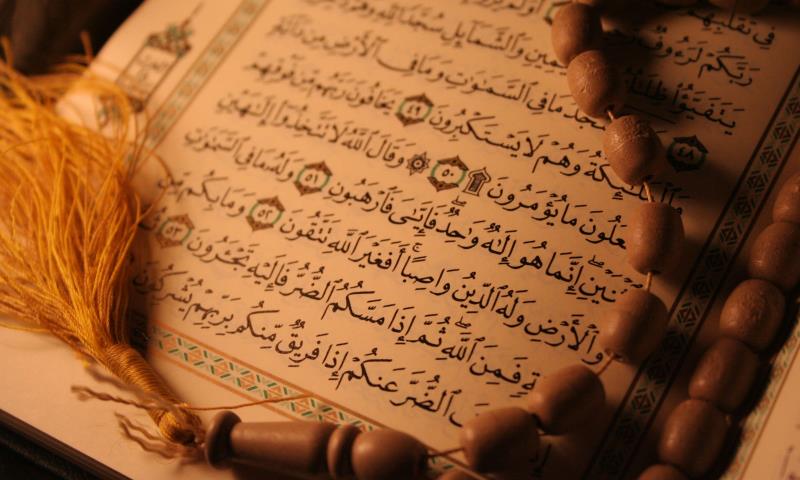 فِى تَقَلُّبِهِمْ
رَبَّكُمْ لَرَءُوفٌ أَوَلَمْ يَرَوْا۟
يَتَفَيَّؤُا۟ ظِلَٰلُهُۥ ٱلْيَمِينِ وَٱلشَّمَآئِلِ سُجَّدًا لِّلَّهِ
٤٨ يَسْجُدُ مَا فِى ٱلسَّمَٰوَٰتِ وَمَا فِى ٱلْأَرْضِ مِن دَآبَّةٍ
وَٱلْمَلَٰٓئِكَةُ وَهُمْ لَا يَسْتَكْبِرُونَ ٤٩ يَخَافُونَ رَبَّهُم مِّن فَوْقِهِمْ
عَلُونَ مَا يُؤْمَرُونَ ۩ ٥٠ ۞ وَقَالَ ٱللَّهُ لَا تَتَّخِذُوٓا۟ إِلَٰهَيْنِ
نَيْنِ إِنَّمَا هُوَ إِلَٰهٌ وَٰحِدٌ فَإِيَّٰىَ فَٱرْهَبُونِ ٥١ وَلَهُۥ مَا فِى ٱلسَّمَٰوَٰتِ
وَٱلْأَرْضِ وَلَهُ ٱلدِّينُ وَاصِبًا أَفَغَيْرَ ٱللَّهِ تَتَّقُونَ ٥٢ وَمَا بِكُم مِّن
ةٍ فَمِنَ ٱللَّهِ ثُمَّ إِذَا مَسَّكُمُ ٱلضُّرُّ فَإِلَيْهِ تَجْـَٔرُونَ ٥٣
ٱلضُّرَّ عَنكُمْ إِذَا فَرِيقٌ مِّنكُم بِرَبِّهِمْ يُشْرِكُونَ